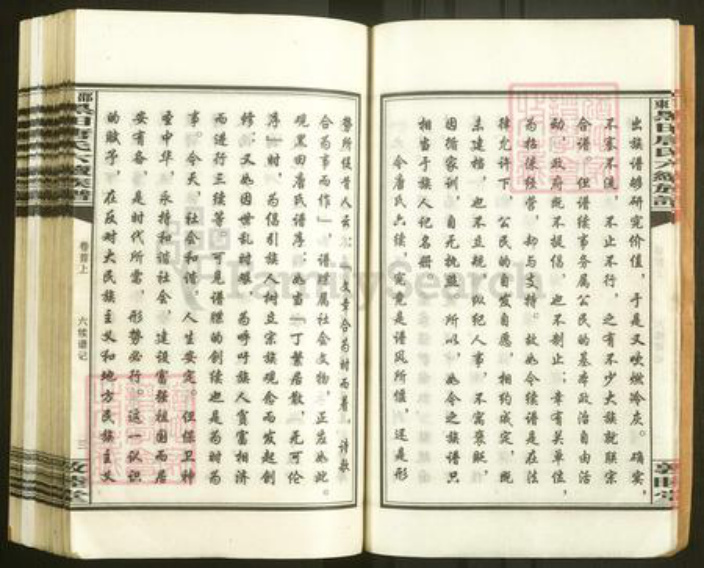 出族谱够研究价值，于是又吹燃冷灰。确实，
不塞不流，不止不行，之有不少大族就联宗
合谱。但谱续事务属公民的基本政治自由活
动，政府既不提倡，也不制止；幸有关单位，
为枯怅经营，却与支持。故如今续谱是在法
律允许下，公民的自发自愿，相约成定，既
未建档，也不立规。纵纪人事，不寓褒贬，
因循家训，自无执盈。所以，如今之族谱只
相当于族人记名册。
今唐氏六续，究竟是谱风所催，还是形
势所促昔人云：“文章合为时而着，诗歌
合为事而作”，谱，属社会文物，正应如此。
观黑田唐氏谱序，如当一丁繁居散，无可伦
序”时，为倡引族人树立宗族观念而发起创
修；又如因世乱时艰，为呼吁族人贫富相济
而进行三续等，可见谱牒的创续也是为时为
事。今天，社会和谐，人生安定。但保卫神
圣中华，永持和谐社会，建设富强祖国而居
安有备，是时代所需，形势必行。这一认识
的赋予，在反对大民族主义和地方民族主义
卷首上
六续谱记
三
敦睦堂